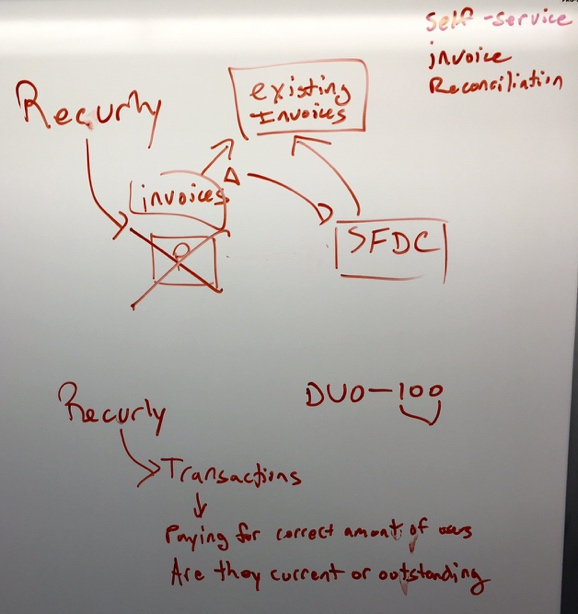 Self-service
invoice
Reconciliation
Recurly
existing
Invoices
invoices
SFDC
DUO-100
Recurly
Transactions
Paying for correct amount of users
Are they current or outstanding